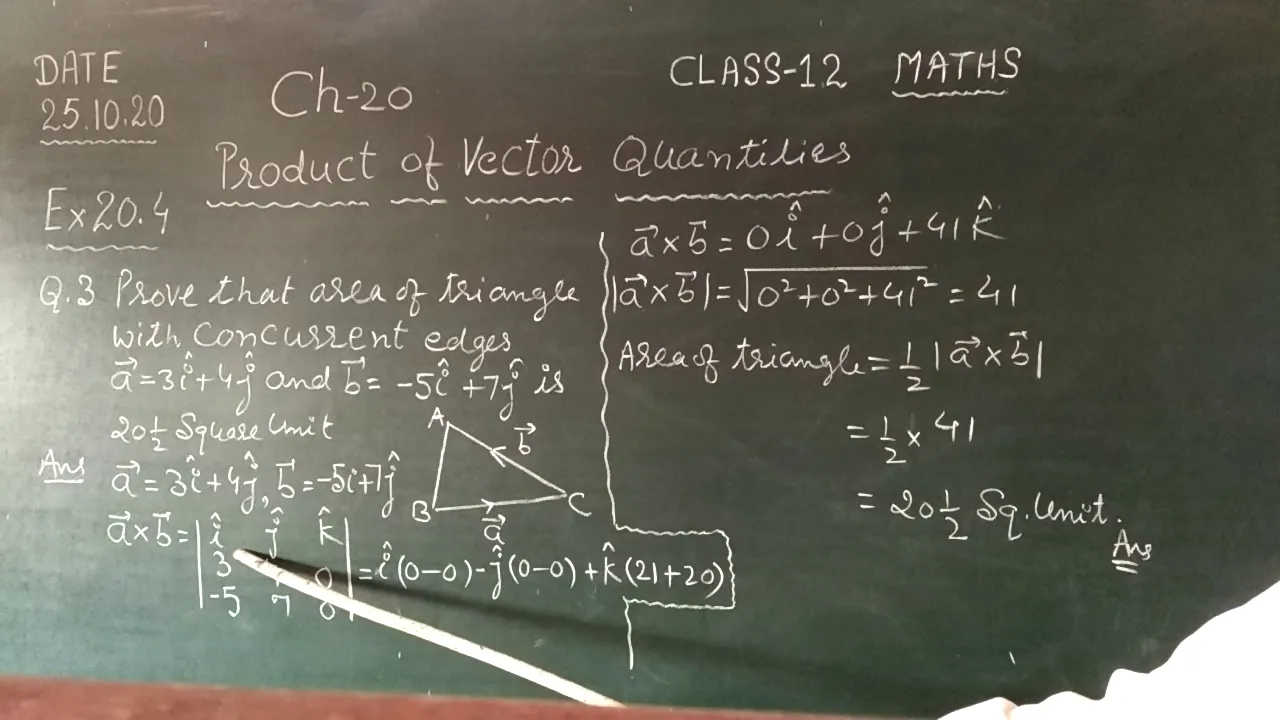 DATE
25.10.20
Ch-20
CLASS-12 MATHS
Product of Vector Quantities
Ex 20.4
Q.3 Prove that area of triangle
with concurrent edges
a⃗ = 3î + 4ĵ and b⃗ = -5î + 7ĵ is
20½ Square Unit
Ans
a⃗ = 3î + 4ĵ, b⃗ = -5i + 7ĵ
A
B
C
b⃗
a⃗
a⃗ × b⃗ = | î ĵ k̂ |
| 3 0 |
| -5 7 0 |
= î(0-0) - ĵ(0-0) + k̂(21+20)
a⃗ × b⃗ = 0î + 0ĵ + 41k̂
|a⃗ × b⃗| = √0² + 0² + 41² = 41
Area of triangle = ½ |a⃗ × b⃗|
= ½ × 41
= 20½ Sq. Unit.
Ans